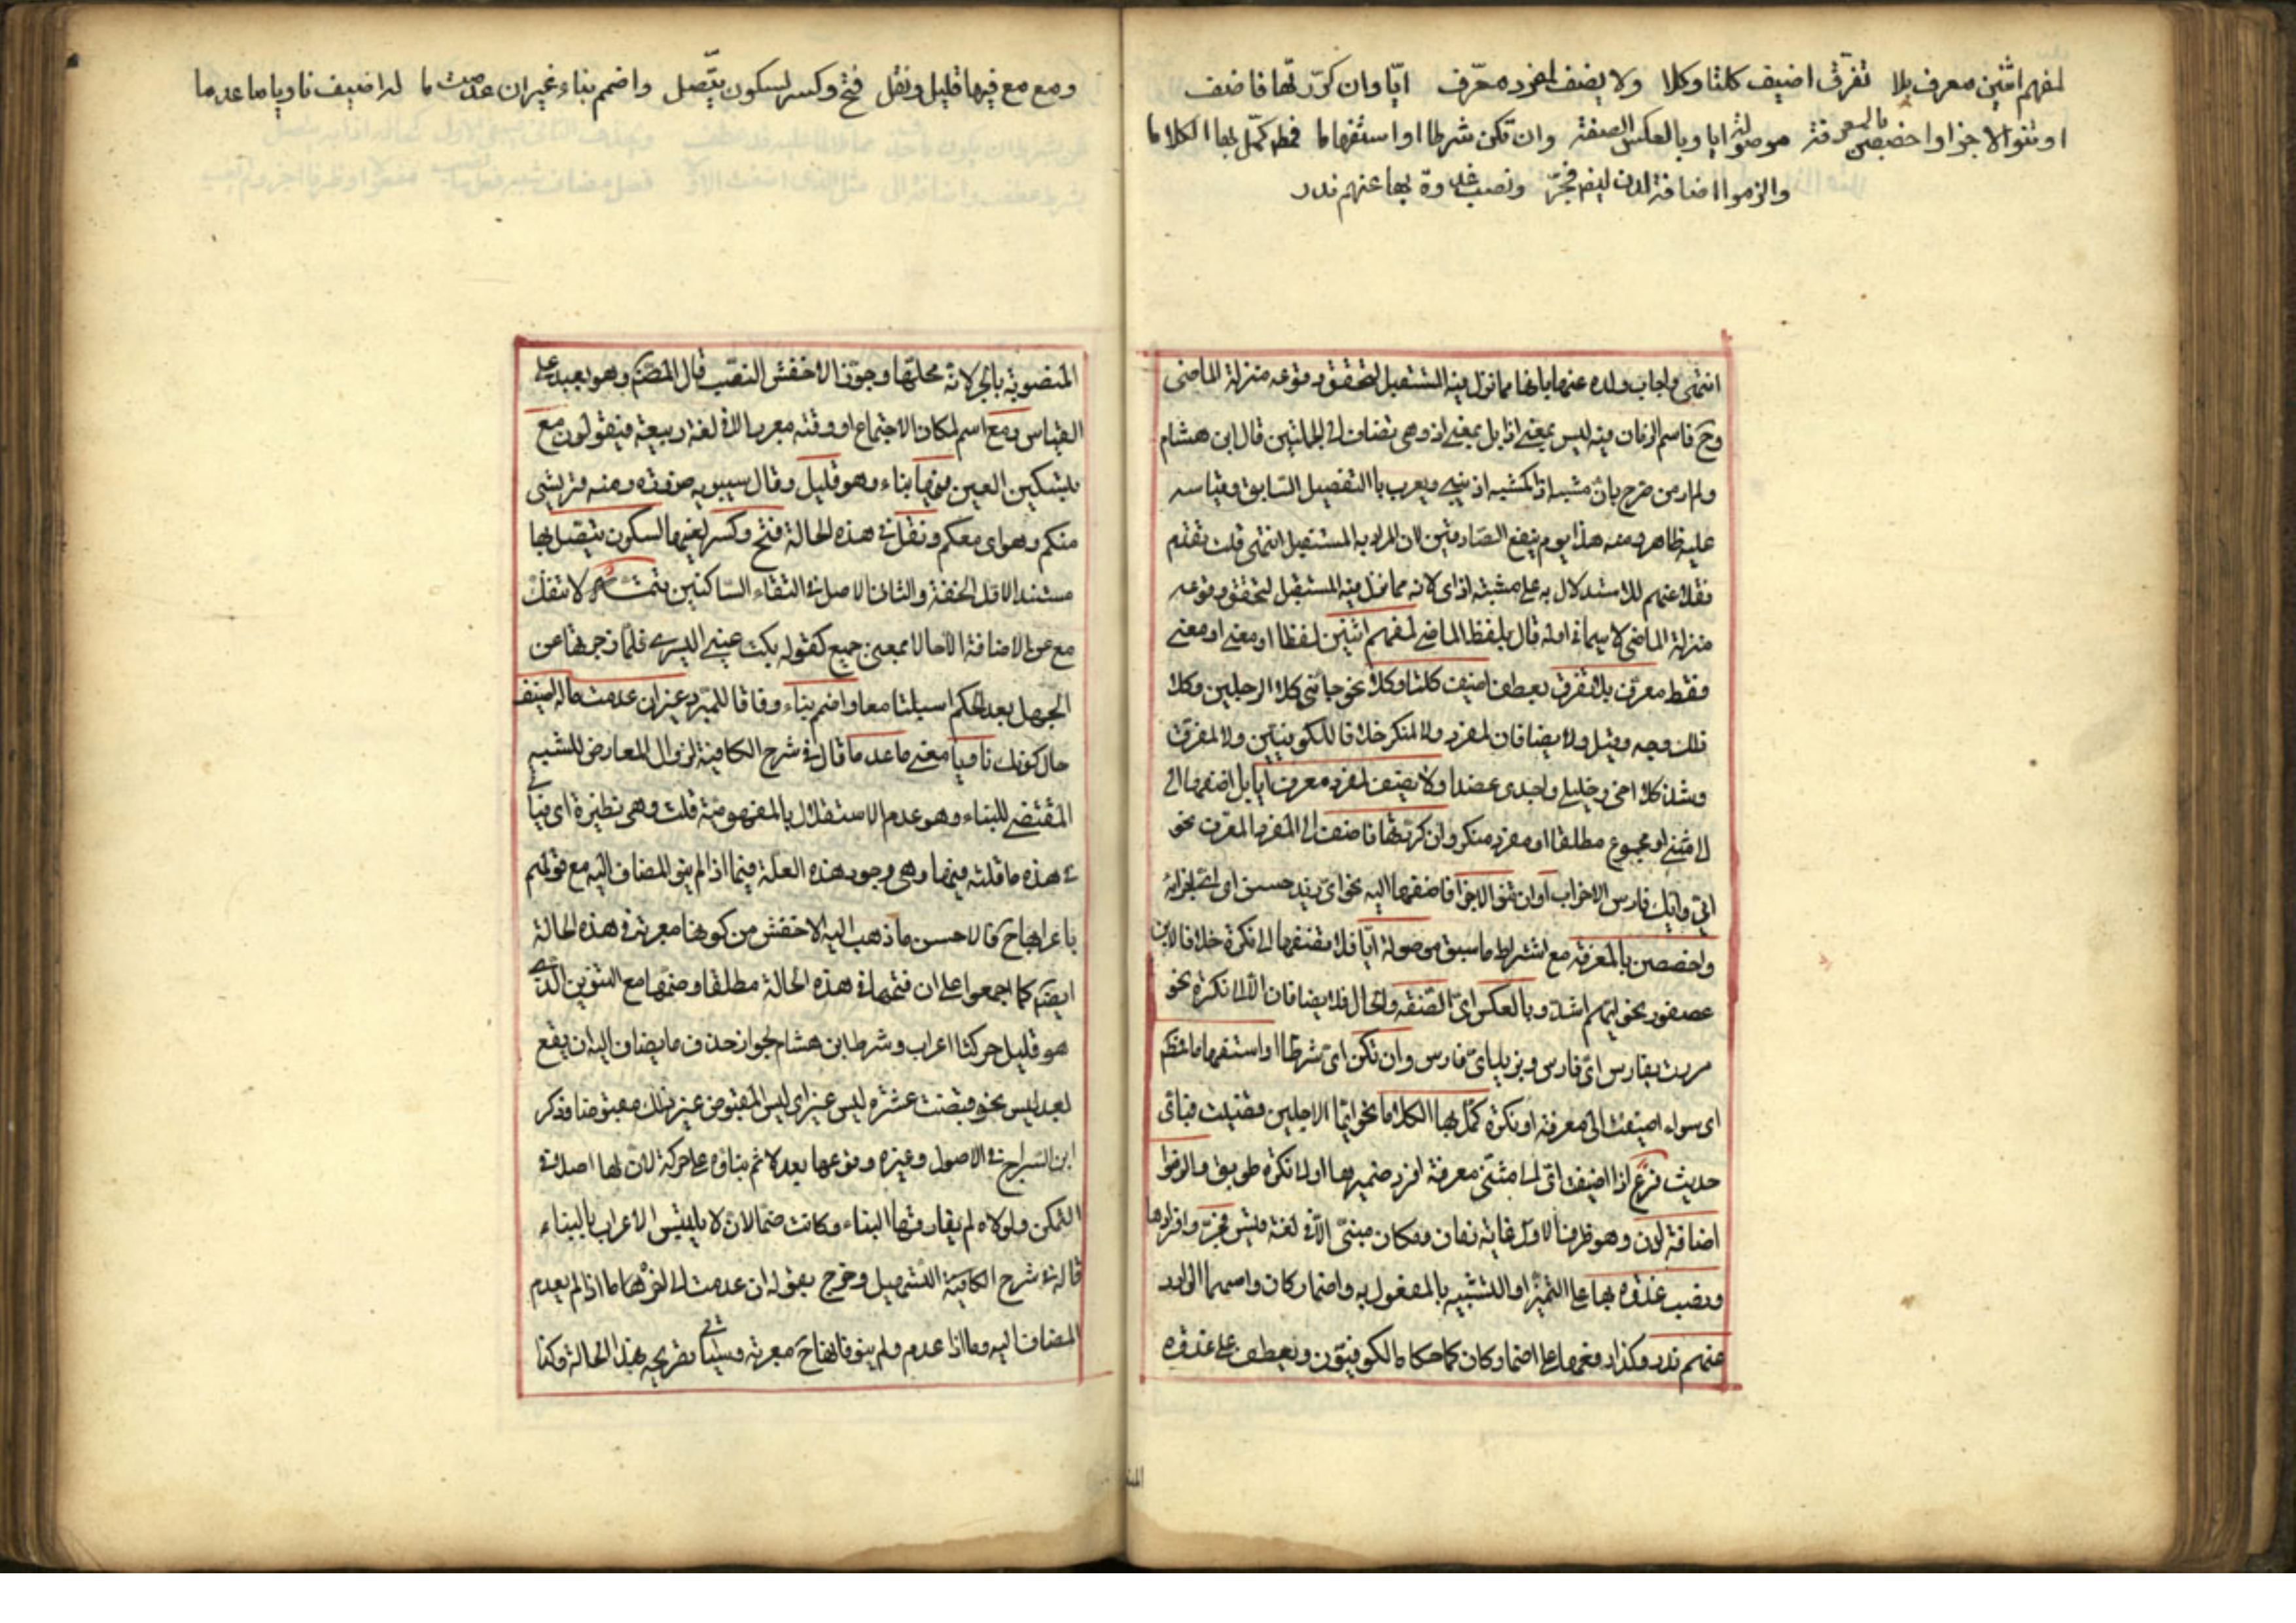 لمفهم اثنين معرف بلا تفرّق اضيف كلتا وكلا ولا يضف لمفرد معرّف ايّا وان كرّرتها فاضف
او تنو الاجزا واخصصن بالمعرفة موصولة ايا وبالعكس الصفة وان تكن شرطا او استفهاما فمطلقا كمّل بها الكلاما
والزموا اضافة لدن فجرّ ونصب غدوة بها عنهم ندر
انتهى واجاب ولده عنها بانها مما نزل فيه المستقبل لتحقق وقوعه منزلة الماضى
وح فاسم الزمان فيه ليس بمعنى اذا بل بمعنى اذ وهى تضاف الى الجملتين قال ابن هشام
ولم ار من صرح بان مشبه اذا كمشبه اذ يبنى ويعرب بالتفصيل السابق وقياسه
عليه ظاهر ومنه هذا يوم ينفع الصادقين لان المراد به المستقبل انتهى قلت تقدم
نقلا عنهم للاستدلال به على مشبه اذ اى لانه مما نزل فيه المستقبل لتحقق وقوعه
منزلة الماضى لا سيما فى اوله قال بلفظ الماضى لمفهم اثنين لفظا او معنى او معنى
فقط معرّف بلا تفرق بعطف اضيف كلتا وكلا نحو جاءنى كلا الرجلين وكلا
ذلك وجه وقبل ولا يضافان لمفرد ولا لمنكر خلافا للكوفيين ولا لمفرق
وشذ كلا اخى وخليلى واجدى عضدا ولا يضف لمفرد معرف ايا بل اضفها الى
مثنى او مجموع مطلقا او مفرد منكر وان كرّرتها فاضف الى المفرد المعرف نحو
ايّى وايّك فارس الاحزاب او ان تنو الاجزا فاضفها اليه نحو اىّ زيد حسن اى اى اجزائه
واخصصن بالمعرفة مع اشتراط ما سبق موصولة ايّا فلا تضفها الى نكرة خلافا لابن
عصفور نحو ايهم اشدّ وبالعكس اىّ الصّفة والحال فلا يضافان الا الى نكرة نحو
مررت بفارس اىّ فارس وبزيد اىّ فارس وان تكن اىّ شرطا او استفهاما فمطلقا
اى سواء اضيفت الى معرفة او نكرة كمّل بها الكلاما نحو ايّما الاجلين قضيت فباىّ
حديث فرع اذا اضيفت اىّ الى مثنّى معرفة افرد ضميرها او الى نكرة طوبق والزموا
اضافة لدن وهو ظرف لاول غاية زمان ومكان مبنىّ الا فى لغة قيس فجرّ وافرادها
ونصب غدوة بها على التميز او التشبيه بالمفعول به واضمار كان واسمها الوارد
عنهم ندر وكذا رفعها على اضمار كان كما حكاه الكوفيّون ويعطف على غدوة
ومع مع فيها قليل ونقل فتح وكسر لسكون يتّصل واضمم بناء غير ان عدمت ما له اضيف ناويا ما عدما
المنصوبة بالجر لانه محلها وجوّز الاخفش النصب قال المصنّف وهو بعيد عن
القياس ومع اسم لمكان الاجتماع او وقته معرب الا فى لغة ربيعة فيقولون مع
بتسكين العين فيها بناء وهو قليل وقال سيبويه ضرورة ومنه فريشى
منكم وهواى معكم ونقل فى هذه الحالة فتح وكسر لعينها لسكون يتصل بها
مستند الاول الخفة والثانى الاصل فى التقاء الساكنين تتمّة لا تنفك
مع عن الاضافة الا حالا بمعنى جميع كقوله بكت عينى اليسرى فلما زجرتها عن
الجهل بعد الحكم اسبلتا معا واضمم بناء وفاقا للمبرد غير ان عدمت ما له اضيف
حال كونك ناويا معنى ما عدما قال فى شرح الكافية لزوال المعارض للشبه
المقتضى للبناء وهو عدم الاستقلال بالمفهومية قلت وهى نظيرة اى فيأتى
فى هذه ما قلته فيها وهى وجود هذه العلة فيما اذا لم ينو المضاف اليه مع قولهم
باعرابها ح فالاحسن ما ذهب اليه الاخفش من كونها معربة فى هذه الحالة
ايضا كما اجمعوا على ان فتحها فى هذه الحالة مطلقا وضمّها مع التنوين الذى
هو قليل حركتا اعراب وشرط ابن هشام لجواز حذف ما يضاف اليه ان يقع
بعد ليس نحو قبضت عشرة ليس غير اى ليس المقبوض غير ذلك مقبوضا وذكر
ابن السّراج فى الاصول وغيره وقوعها بعد لا ثم بناؤه على حركة لان لها اصلا فى
التمكن ولولاه لم يفارقها البناء وكانت ضمّا لان لا يلتبس الاعراب بالبناء
قاله فى شرح الكافية التسهيل وخرج بقوله ان عدمت الى اخرها ما اذا لم يعدم
المضاف اليه وما اذا عدم ولم ينو فانها ح معربة وسيأتى تصريحه بهذا الحالة وكذا